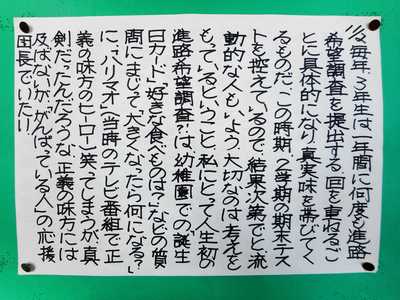 11/16 毎年、3年生は一年間に何度も進路
希望調査を提出する。回を重ねるご
とに具体的になり真実味を帯びてく
るものだ。この時期、2学期の期末テス
トを控えているので、結果次第でと流
動的な人もいよう。大切なのは考えを
もっているということ。私にとって人生初の
進路希望調査?は幼稚園での「誕生
日カード」。好きな食べものは?などの質
問にまじって、大きくなったら何になる?
に「ハリマオ」(当時のテレビ番組で正
義の味方のヒーロー)笑ってしまうが、真
剣だったんだろうな。正義の味方には
及ばないが「がんばっている人」の応援
団長でいたい!